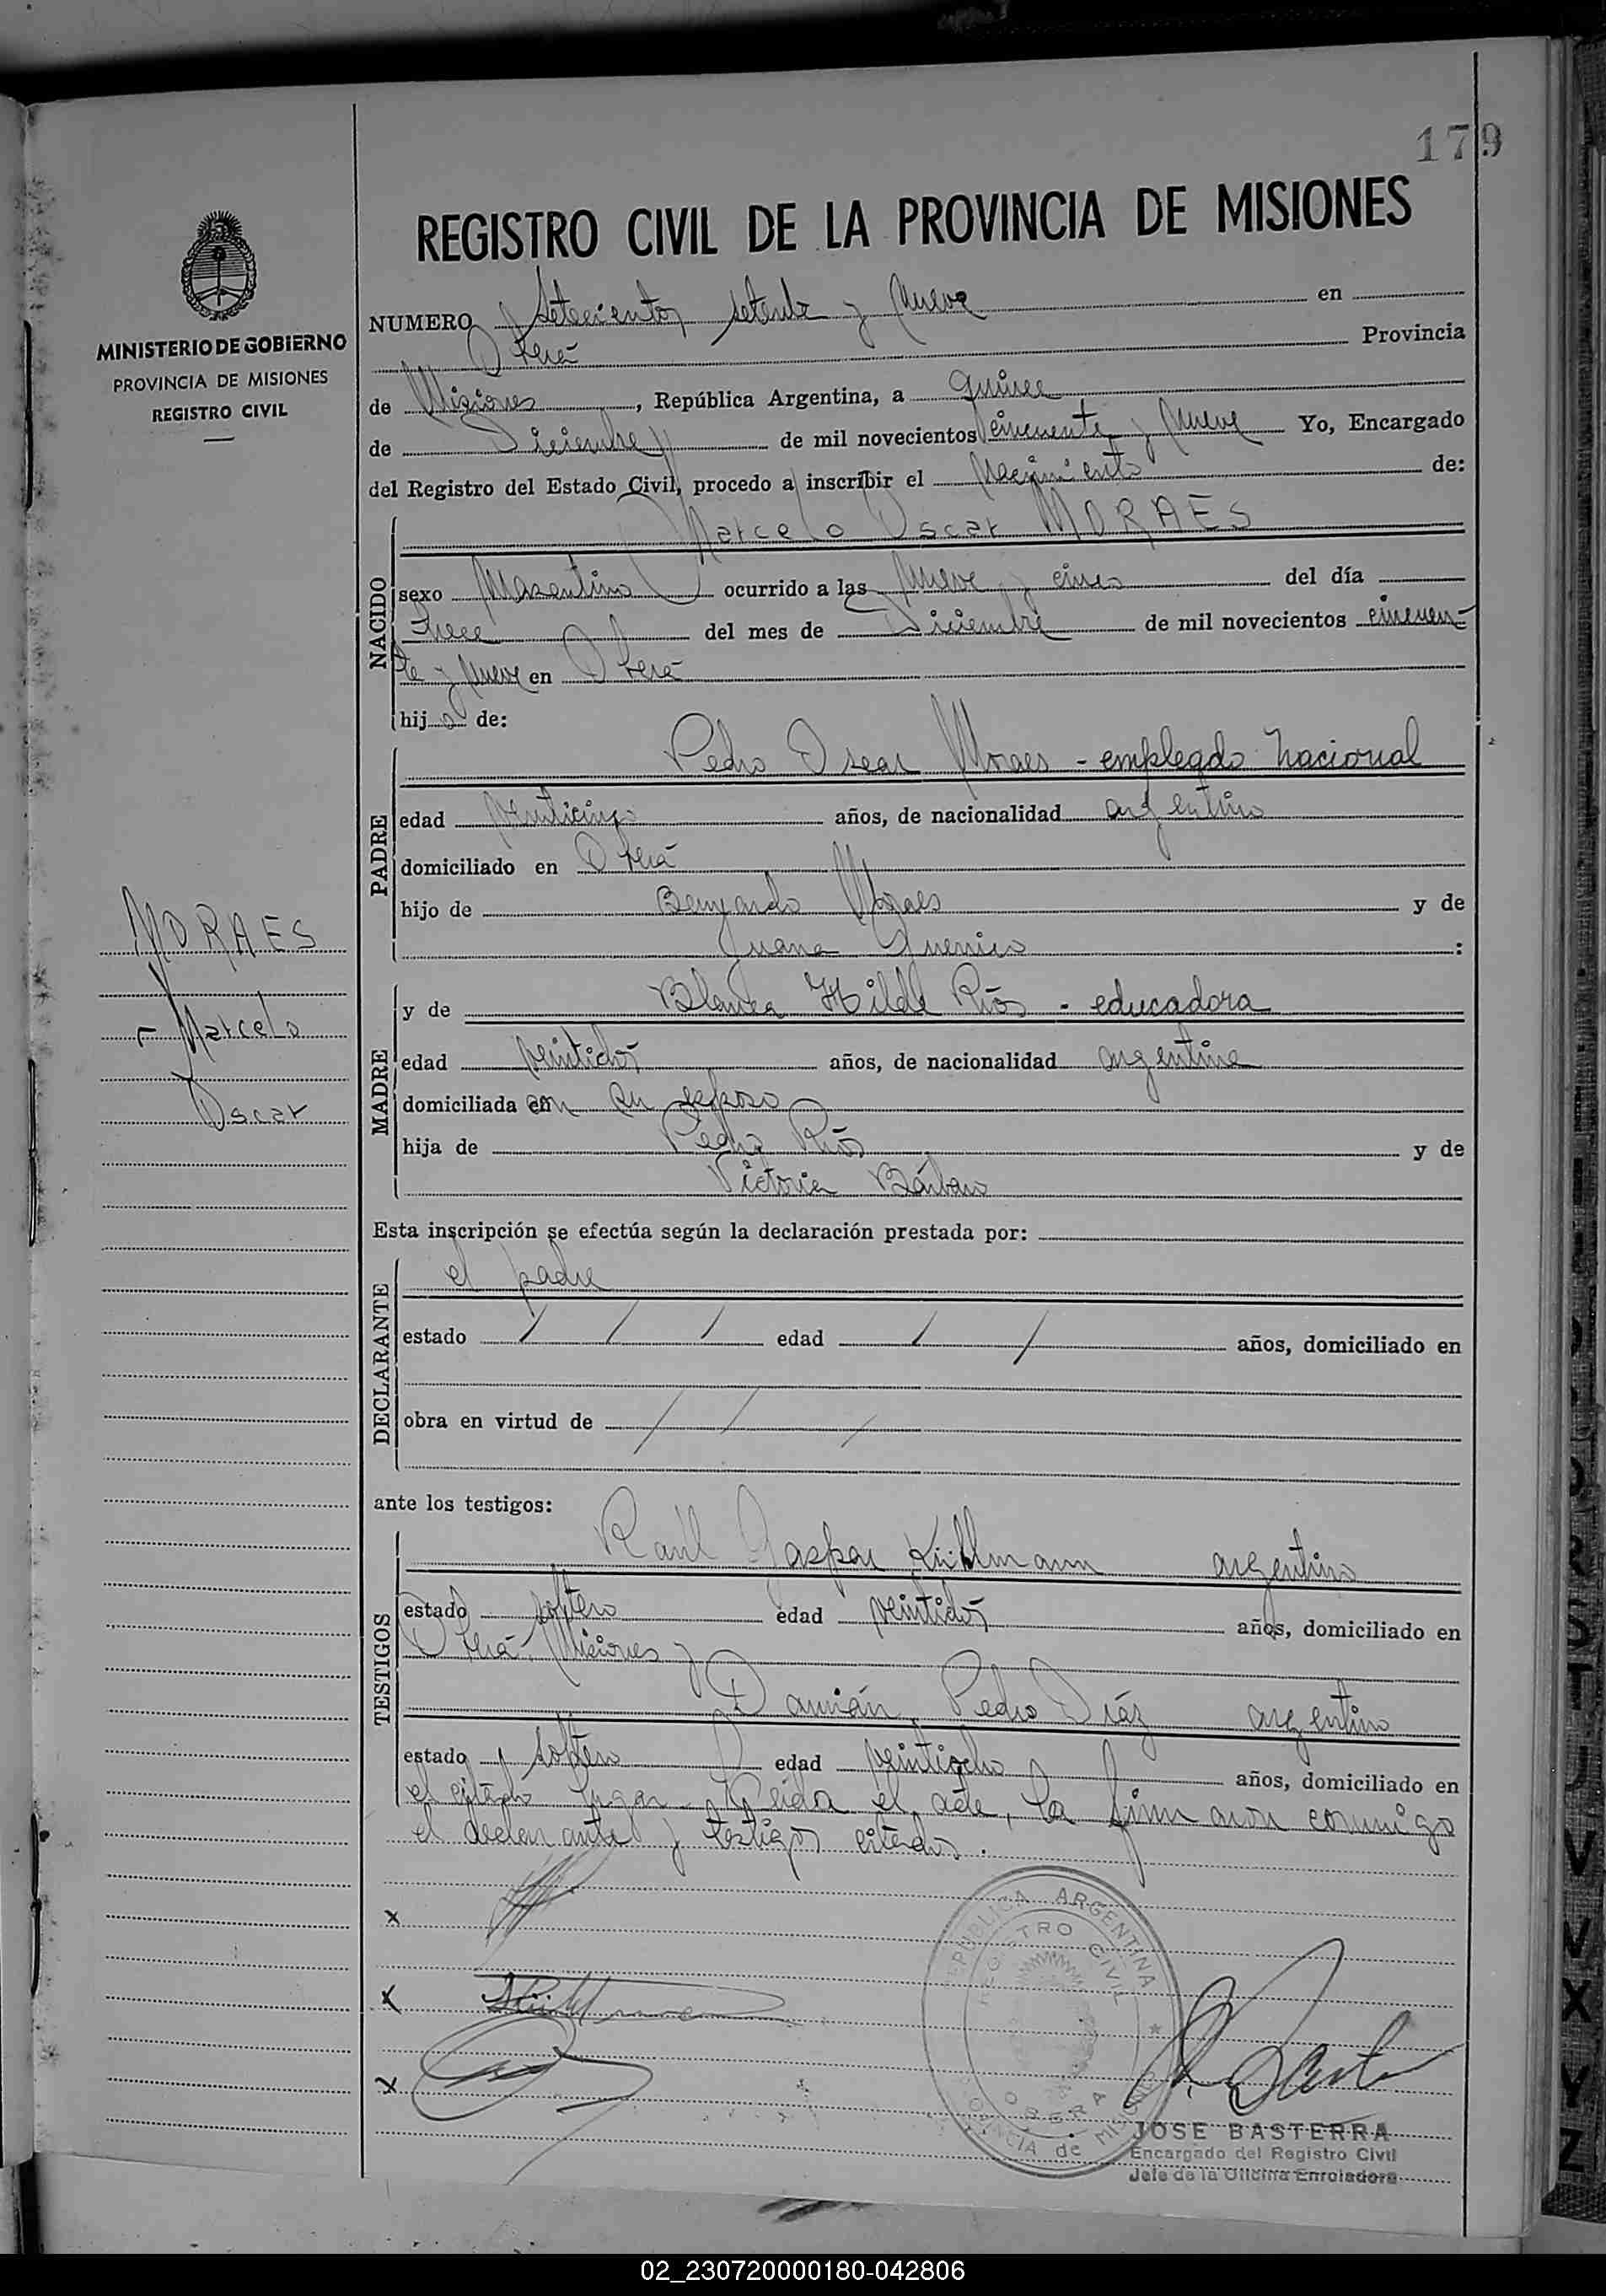 179
REGISTRO CIVIL DE LA PROVINCIA DE MISIONES
MINISTERIO DE GOBIERNO
PROVINCIA DE MISIONES
REGISTRO CIVIL
NUMERO Setecientos setenta y nueve en
Oberá Provincia
de Misiones, República Argentina, a quince
de Diciembre de mil novecientos cincuenta y nueve Yo, Encargado
del Registro del Estado Civil, procedo a inscribir el Nacimiento de:
NACIDO
Marcelo Oscar MORAES
sexo Masculino ocurrido a las nueve y cinco del día
trece del mes de Diciembre de mil novecientos cincuen-
ta y nueve en Oberá
hijo de:
PADRE
Pedro Oscar Moraes - empleado nacional
edad veinticinco años, de nacionalidad argentino
domiciliado en Oberá
hijo de Moraes y de
Juana :
MORAES
Marcelo
Oscar
MADRE
y de Blanca Hilda Ríos - educadora
edad veintidós años, de nacionalidad argentina
domiciliada con su esposo
hija de Pedro Ríos y de
Victoria Bárbaro
Esta inscripción se efectúa según la declaración prestada por:
DECLARANTE
el padre
estado / / / edad / / años, domiciliado en
obra en virtud de / / /
ante los testigos:
TESTIGOS
Raúl Gaspar Kühlmann argentino
estado soltero edad veintidós años, domiciliado en
Oberá, Misiones y
Damián Pedro Díaz argentino
estado soltero edad veintiocho años, domiciliado en
el citado lugar. Leida el acta, la firmaron conmigo
el declarante y testigos citados.
x
x
x
REPUBLICA ARGENTINA
REGISTRO CIVIL
OBERA
PROVINCIA de MISIONES
JOSE BASTERRA
Encargado del Registro Civil
Jefe de la Oficina Enroladora
02_230720000180-042806